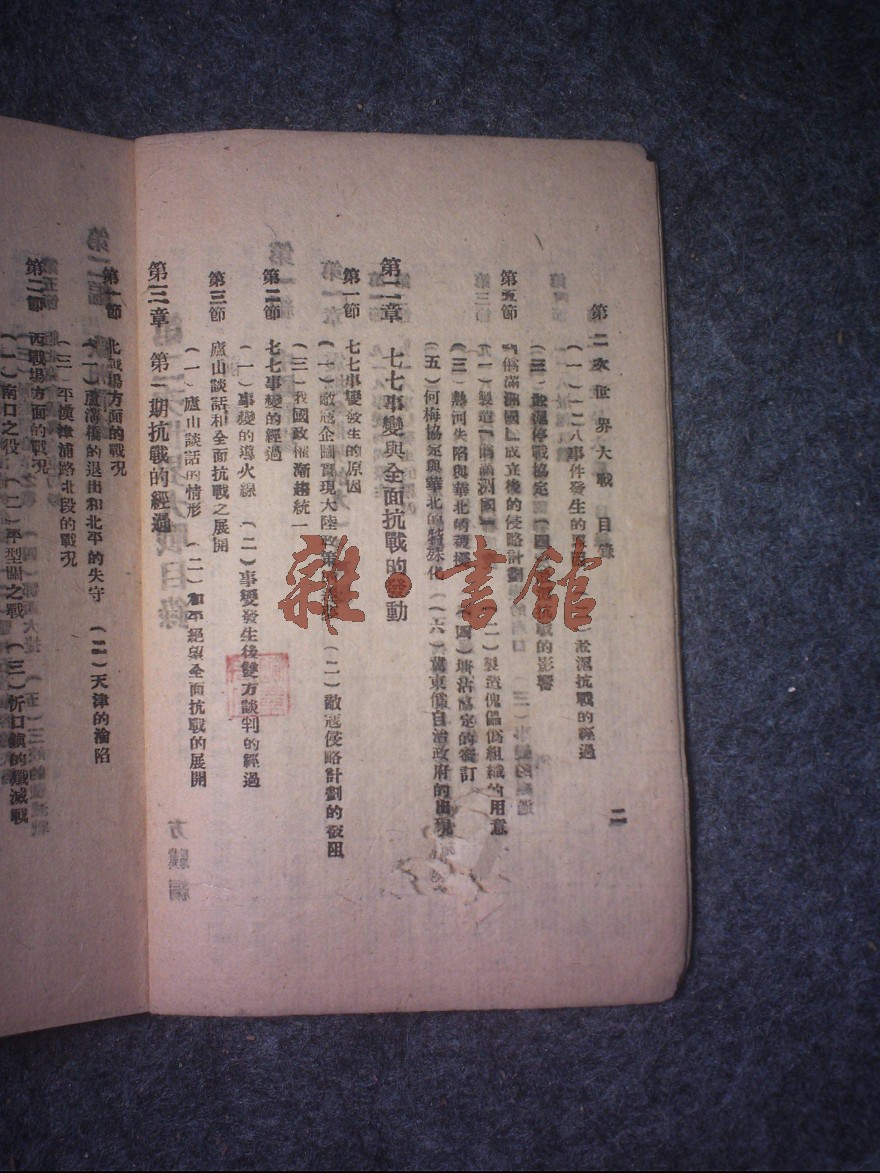 第二次世界大戰 目錄
二
(一)一二八事件發生的原因 (二)淞滬抗戰的經過
(三)淞滬停戰協定 (四)抗戰的影響
第五節 「偽滿洲國」成立後的侵略計劃
(一)製造「偽滿洲國」 (二)製造傀儡偽組織的用意
(三)熱河失陷與華北的 (四)塘沽協定的簽訂
(五)何梅協定與華北的特殊化 (六)冀東偽自治政府的出現
第二章 七七事變與全面抗戰的發動
第一節 七七事變發生的原因
(一)敵寇企圖實現大陸政策 (二)敵寇侵略計劃的被阻
(三)我國政權漸趨統一
第二節 七七事變的經過
(一)事變的導火線 (二)事變發生後雙方談判的經過
第三節 廬山談話和全面抗戰之展開
(一)廬山談話的情形 (二)和平絕望全面抗戰的展開
第三章 第一期抗戰的經過
第一節 北戰場方面的戰況
(一)盧溝橋的退出和北平的失守 (二)天津的淪陷
(三)平漢津浦路北段的戰況
第二節 西戰場方面的戰況
(一)南口之役 (二)平型關之戰 (三)忻口鎮的殲滅戰
雜·書館